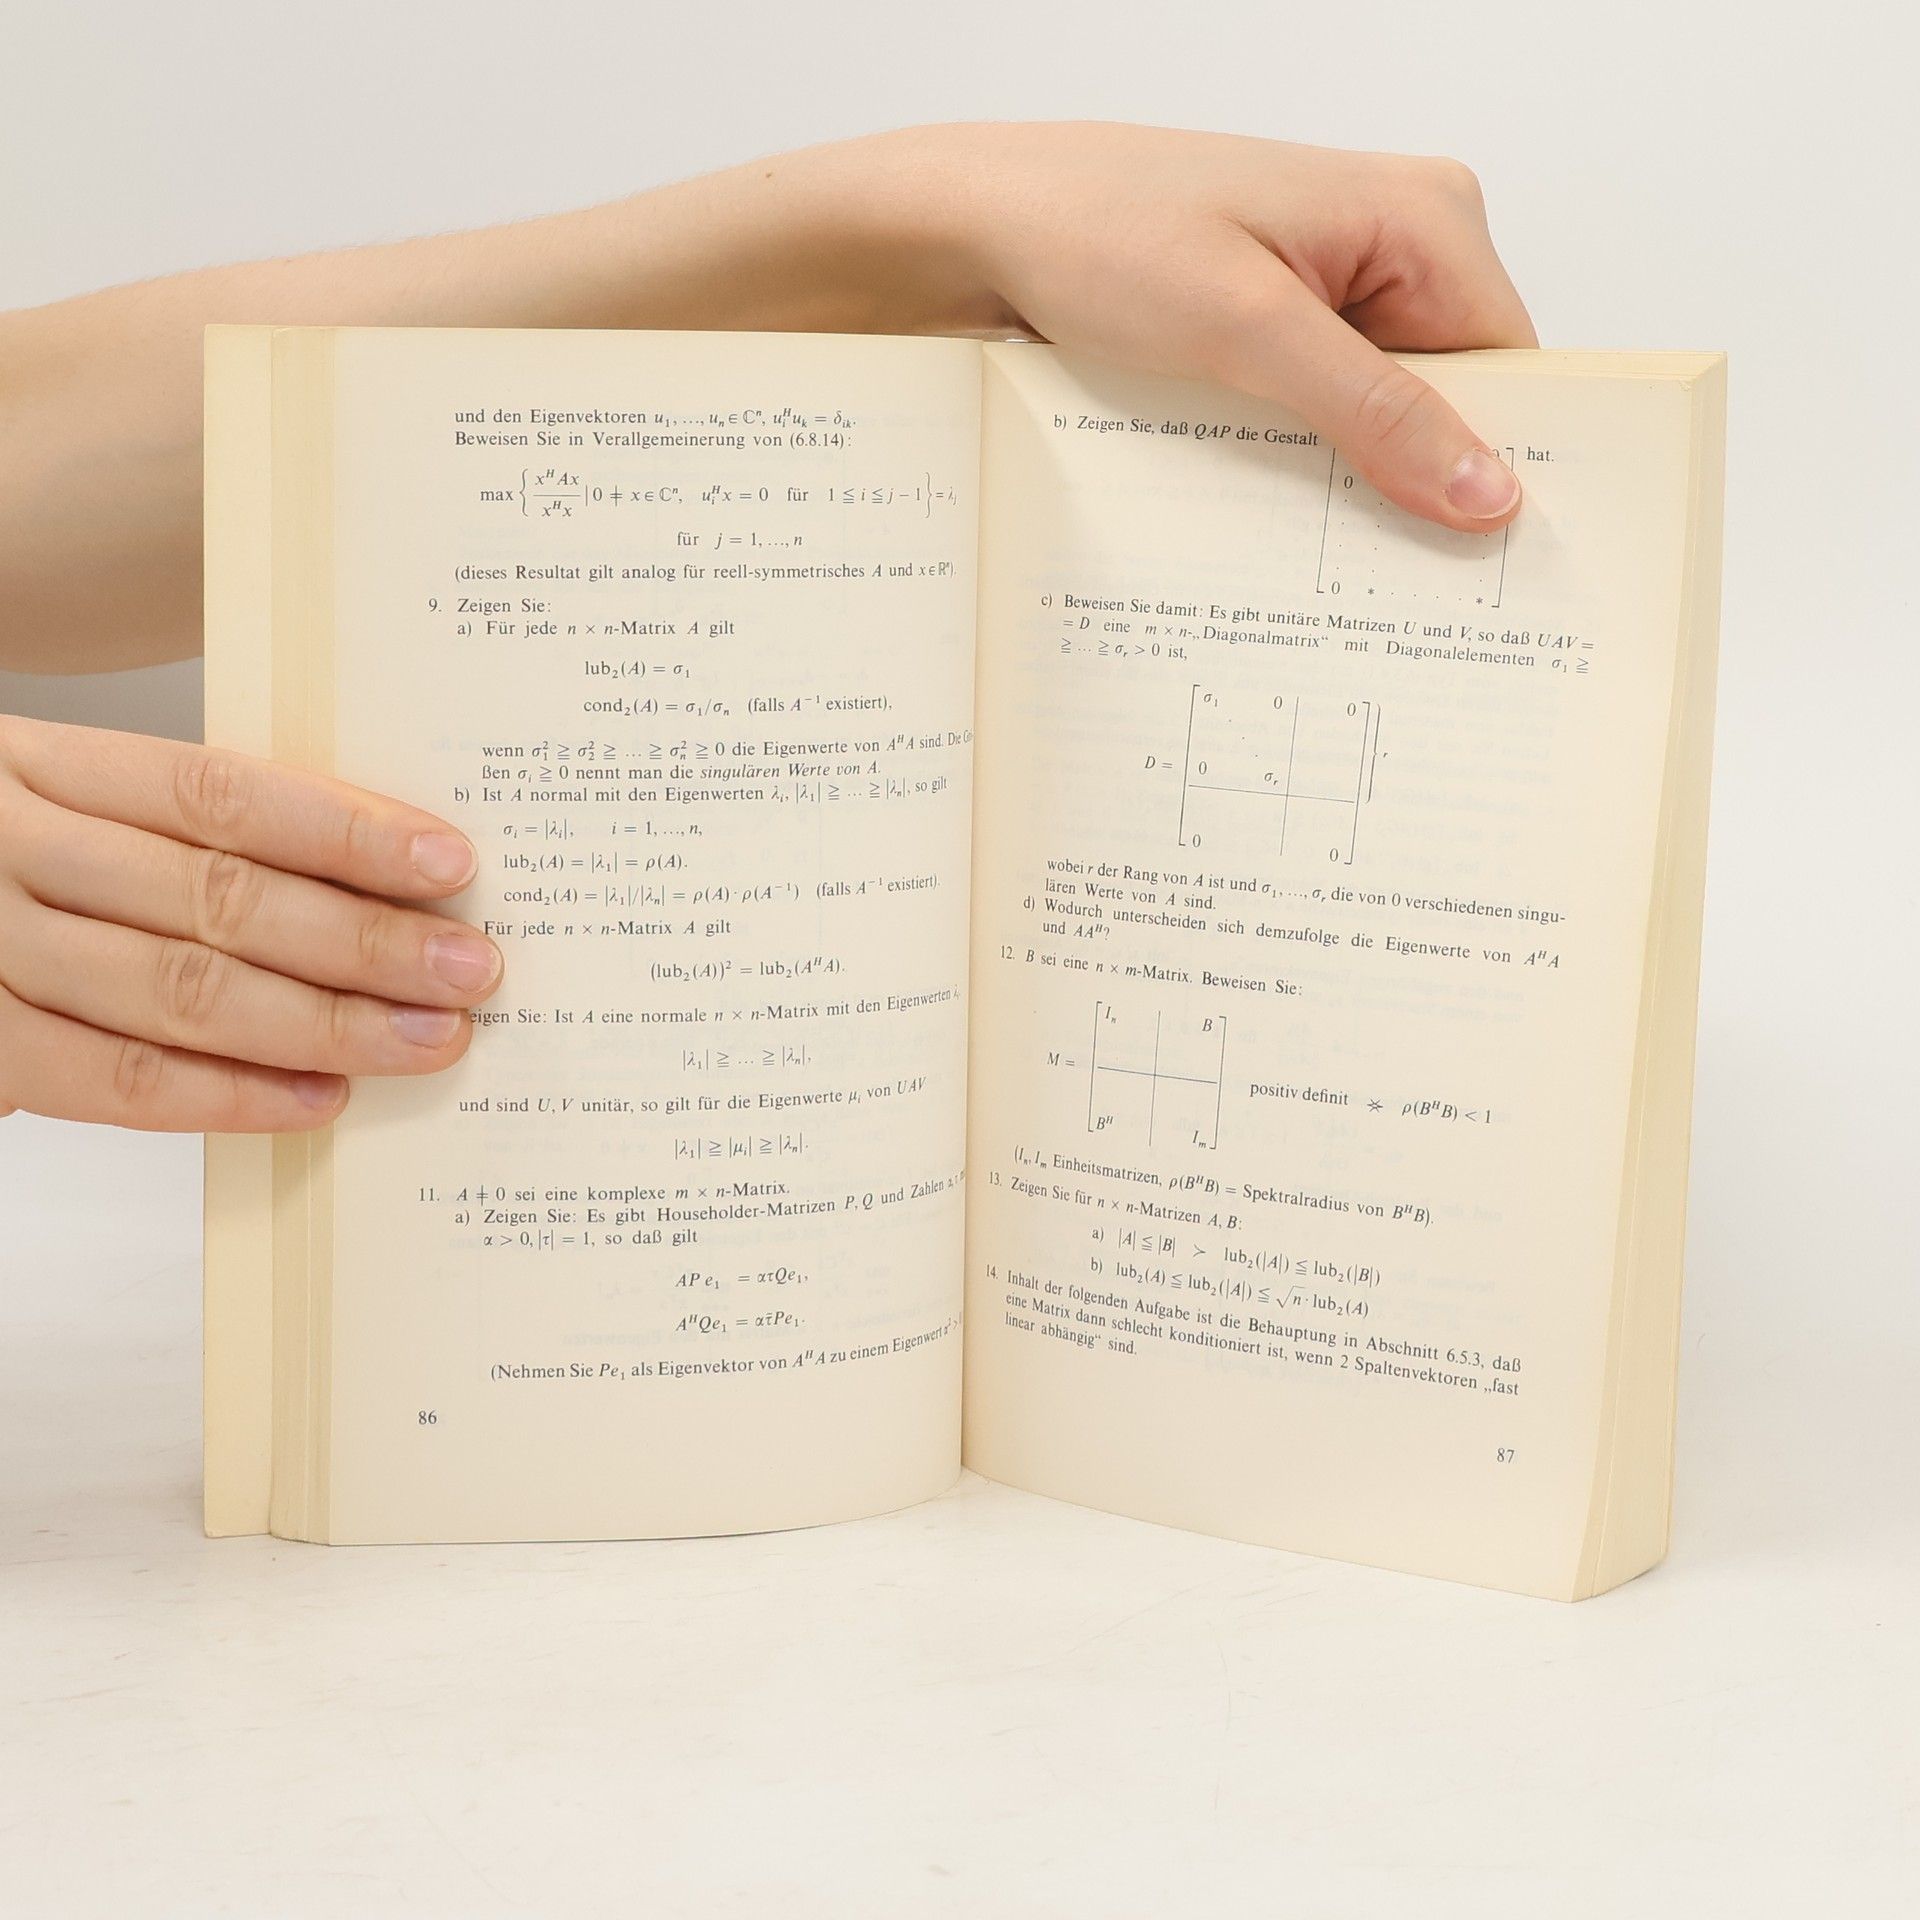 und den Eigenvektoren u₁, ..., uₙ ∈ ℂⁿ, uᵢᴴuₖ = δᵢₖ.
Beweisen Sie in Verallgemeinerung von (6.8.14):
max { xᴴAx / xᴴx | 0 ≠ x ∈ ℂⁿ, uᵢᴴx = 0 für 1 ≦ i ≦ j − 1 } = λⱼ
für j = 1, ..., n
(dieses Resultat gilt analog für reell-symmetrisches A und x ∈ ℝⁿ).
9. Zeigen Sie:
a) Für jede n × n-Matrix A gilt
lub₂(A) = σ₁
cond₂(A) = σ₁/σₙ (falls A⁻¹ existiert),
wenn σ₁² ≧ σ₂² ≧ ... ≧ σₙ² ≧ 0 die Eigenwerte von AᴴA sind. Die
ßen σᵢ ≧ 0 nennt man die singulären Werte von A.
b) Ist A normal mit den Eigenwerten λᵢ, |λ₁| ≧ ... ≧ |λₙ|, so gilt
σᵢ = |λᵢ|, i = 1, ..., n,
lub₂(A) = |λ₁| = ρ(A).
cond₂(A) = |λ₁|/|λₙ| = ρ(A) · ρ(A⁻¹) (falls A⁻¹ existiert).
Für jede n × n-Matrix A gilt
(lub₂(A))² = lub₂(AᴴA).
eigen Sie: Ist A eine normale n × n-Matrix mit den Eigenwerten λᵢ
|λ₁| ≧ ... ≧ |λₙ|,
und sind U, V unitär, so gilt für die Eigenwerte μᵢ von UAV
|λ₁| ≧ |μᵢ| ≧ |λₙ|.
11. A ≠ 0 sei eine komplexe m × n-Matrix.
a) Zeigen Sie: Es gibt Householder-Matrizen P, Q und Zahlen α, τ,
α > 0, |τ| = 1, so daß gilt
APe₁ = ατQe₁,
AᴴQe₁ = ατ̄Pe₁.
(Nehmen Sie Pe₁ als Eigenvektor von AᴴA zu einem Eigenwert α² >
86
b) Zeigen Sie, daß QAP die Gestalt
hat.
0
0 * . . . . *
c) Beweisen Sie damit: Es gibt unitäre Matrizen U und V, so daß UAV =
= D eine m × n-„Diagonalmatrix“ mit Diagonalelementen σ₁ ≧
≧ ... ≧ σᵣ > 0 ist,
σ₁ 0 0
D = 0 σᵣ r
0 0
wobei r der Rang von A ist und σ₁, ..., σᵣ die von 0 verschiedenen singu-
lären Werte von A sind.
d) Wodurch unterscheiden sich demzufolge die Eigenwerte von AᴴA
und AAᴴ?
12. B sei eine n × m-Matrix. Beweisen Sie:
Iₙ B
M = positiv definit ⪥ ρ(BᴴB) < 1
Bᴴ Iₘ
(Iₙ, Iₘ Einheitsmatrizen, ρ(BᴴB) = Spektralradius von BᴴB).
13. Zeigen Sie für n × n-Matrizen A, B:
a) |A| ≦ |B| ≻ lub₂(|A|) ≦ lub₂(|B|)
b) lub₂(A) ≦ lub₂(|A|) ≦ √n · lub₂(A)
14. Inhalt der folgenden Aufgabe ist die Behauptung in Abschnitt 6.5.3, daß
eine Matrix dann schlecht konditioniert ist, wenn 2 Spaltenvektoren „fast
linear abhängig“ sind.
87